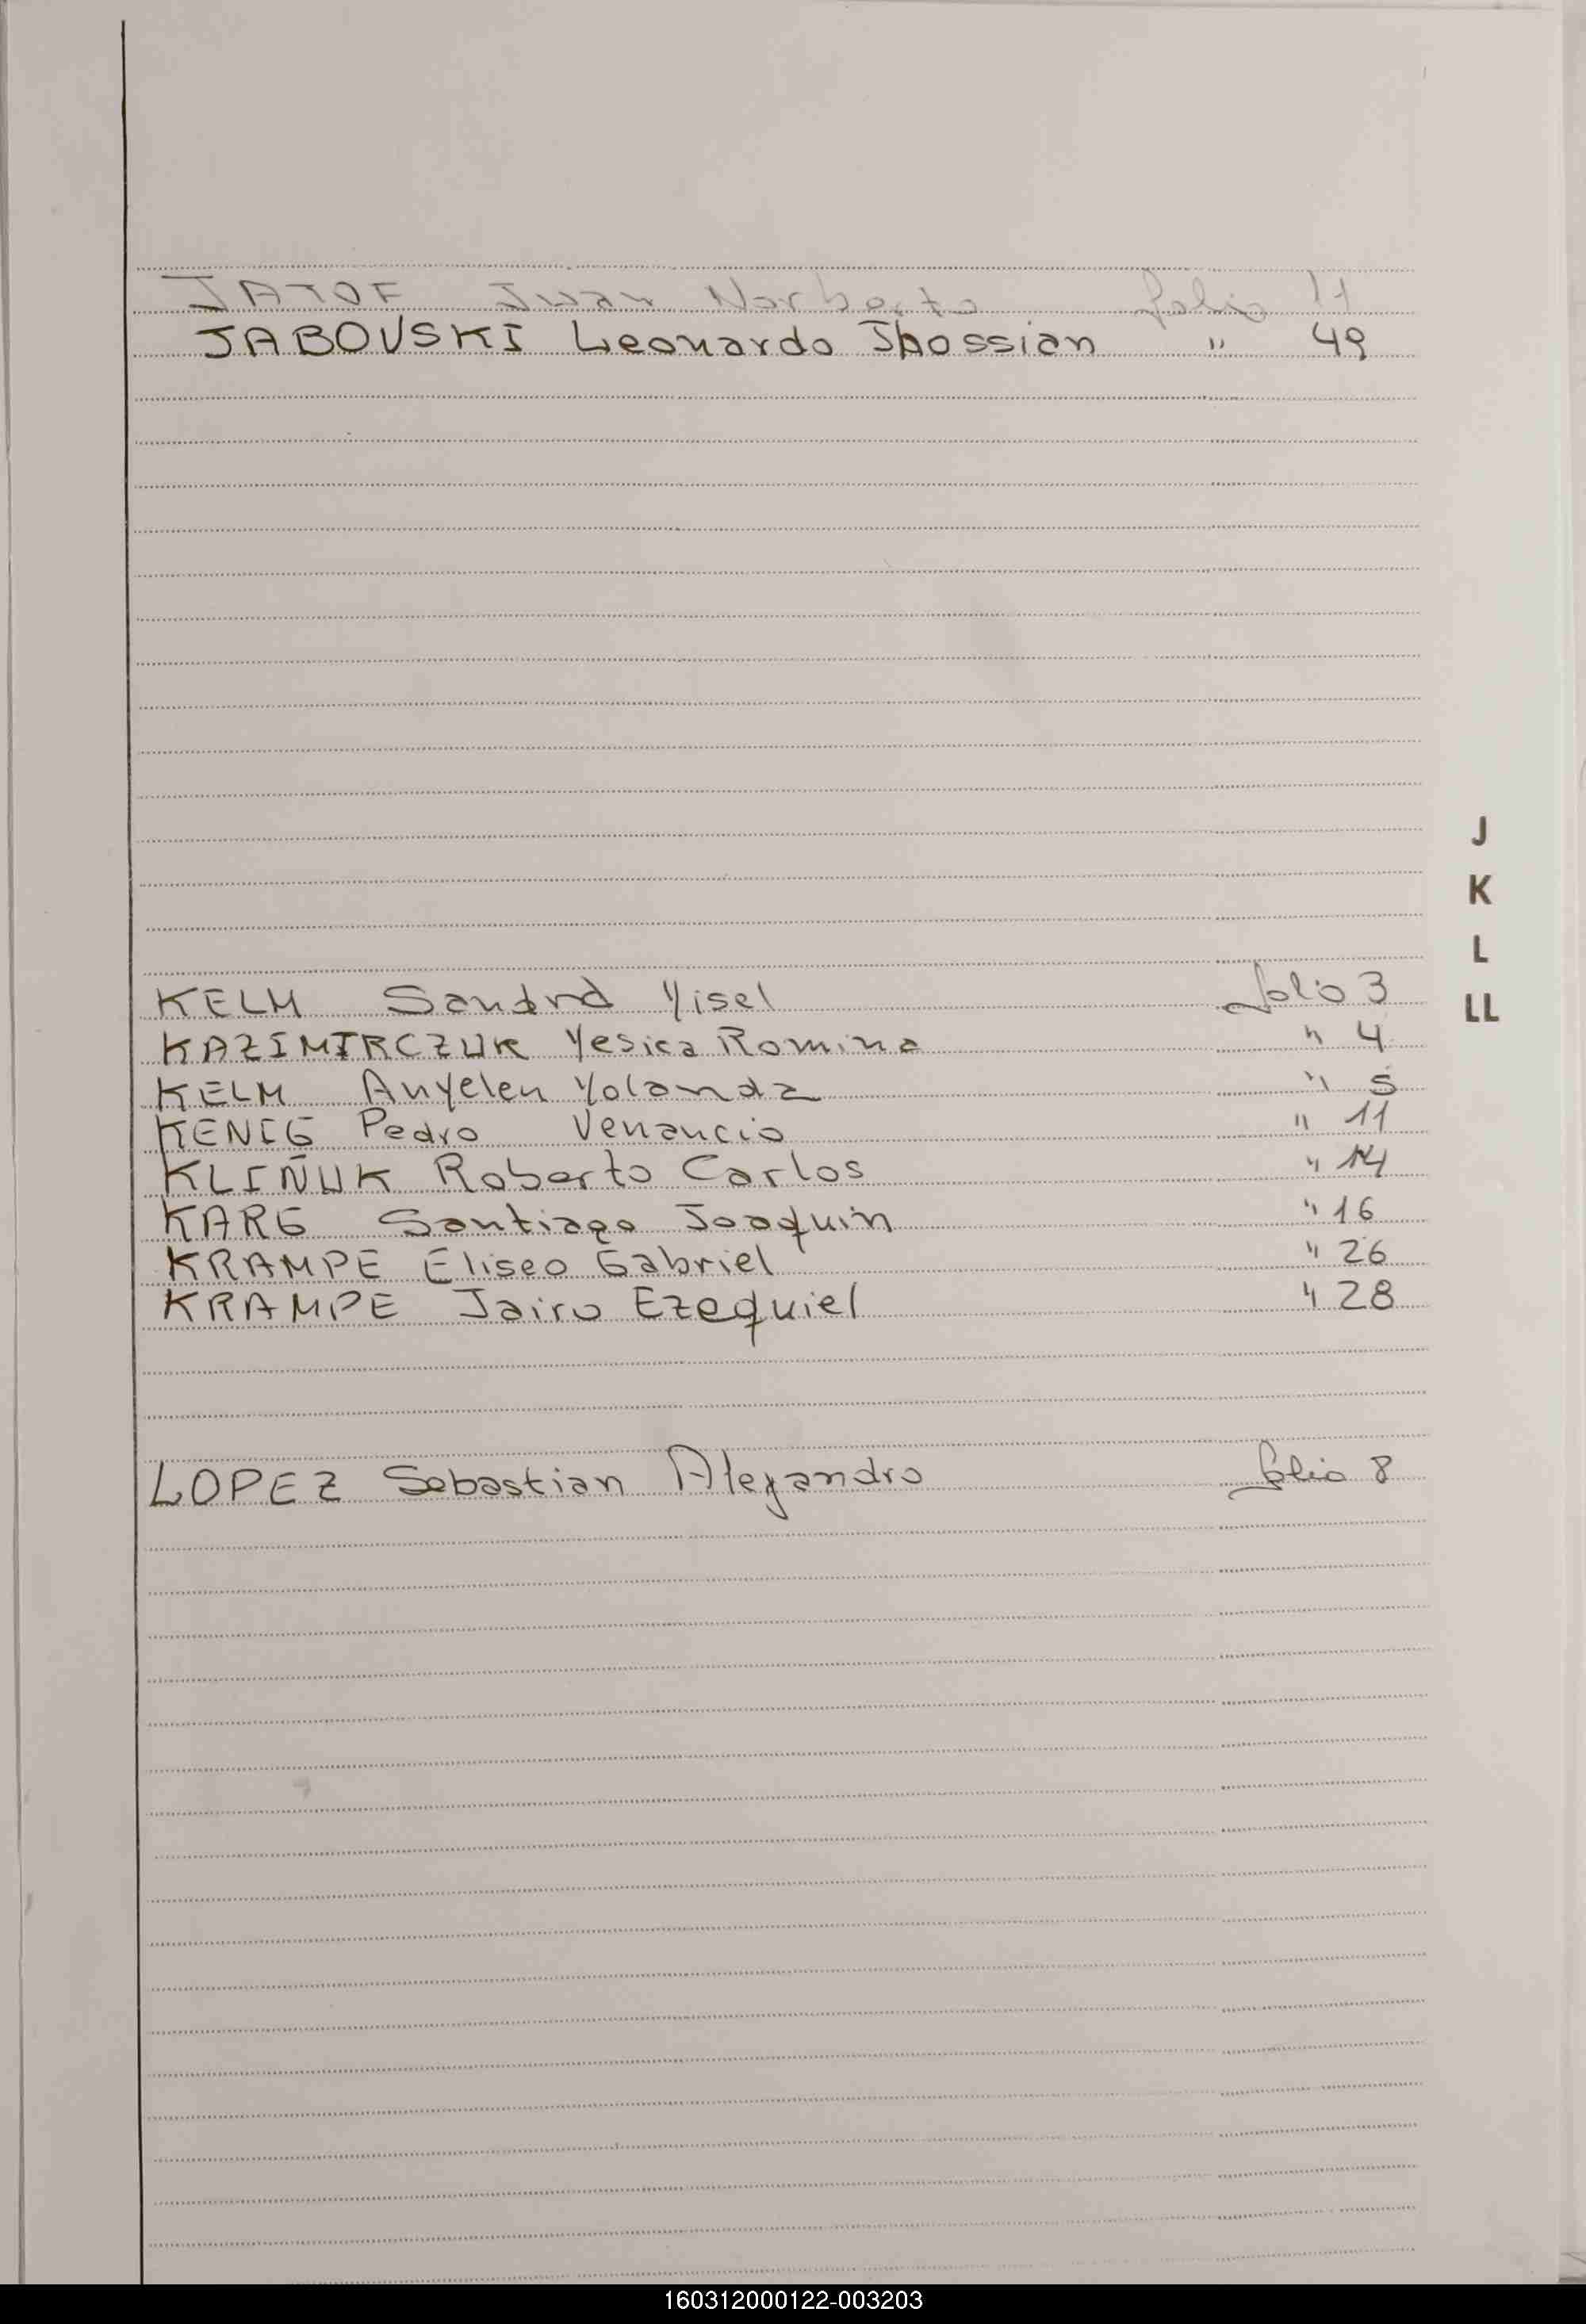 JATOF Juan Norberto folio 11
JABOVSKI Leonardo Jhossian " 49
J
K
L
LL
KELM Sandra Yisel folio 3
KAZIMIRCZUK Yesica Romina " 4
KELM Anyelen Yolanda " 5
KENIG Pedro Venancio " 11
KLIÑUK Roberto Carlos " 14
KARG Santiago Joaquin " 16
KRAMPE Eliseo Gabriel " 26
KRAMPE Jairo Ezequiel " 28
LOPEZ Sebastian Alejandro folio 8
160312000122-003203